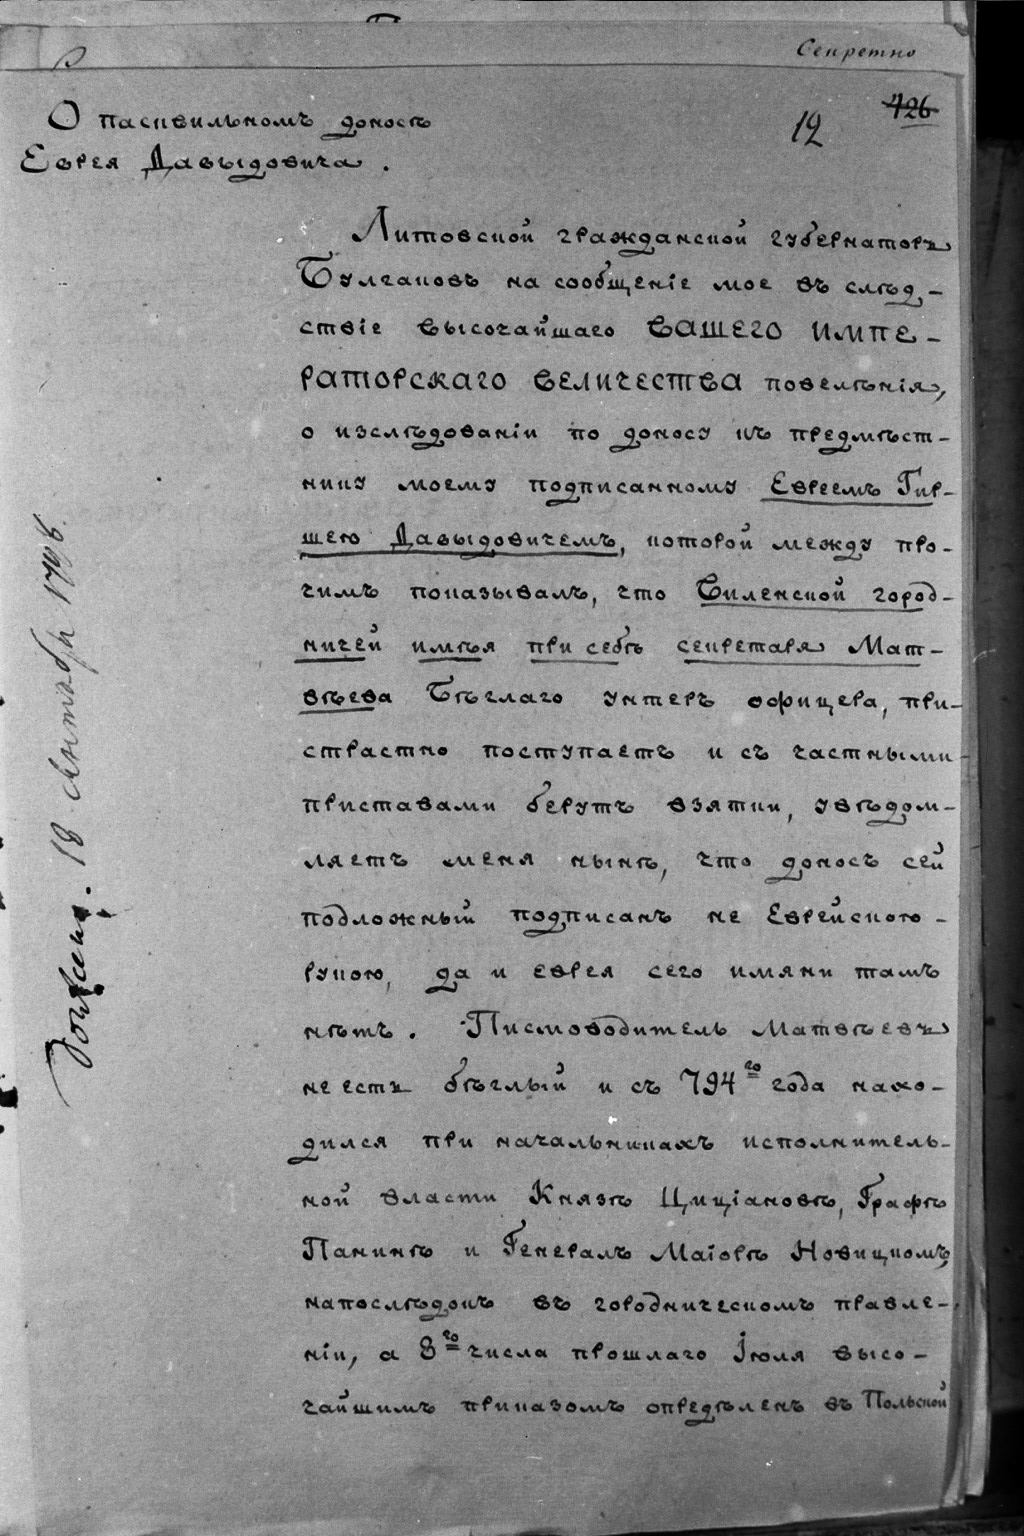 Секретно
426
12
О пасквильномъ доносѣ
Еврея Давыдовича.
Литовской гражданской губернаторъ
Булгаковъ на сообщеніе мое въ слѣд-
ствіе высочайшаго ВАШЕГО ИМПЕ-
РАТОРСКАГО ВЕЛИЧЕСТВА повелѣнія,
о изслѣдованіи по доносу къ предмѣст-
нику моему подписанному Евреемъ Гир-
шею Давыдовичемъ, которой между про-
чимъ показывалъ, что Виленской город-
ничей имѣя при себѣ секретаря Мат-
вѣева бѣглаго унтеръ офицера, при-
страстно поступаетъ и съ частными
приставами берутъ взятки, увѣдом-
ляетъ меня нынѣ, что доносъ сей
подложный подписанъ не Еврейскою-
рукою, да и еврея сего имяни тамъ
нѣтъ. Писмоводитель Матвѣевъ
не есть бѣглый и съ 794го года нахо-
дился при начальникахъ исполнитель-
ной власти Князѣ Циціановѣ, Графѣ
Панинѣ и Генералъ Маіорѣ Новицкомъ,
напослѣдокъ въ городническомъ правле-
ніи, а 8го числа прошлаго Іюля высо-
чайшимъ приказомъ опредѣленъ въ Польской
18 сентября 1798.